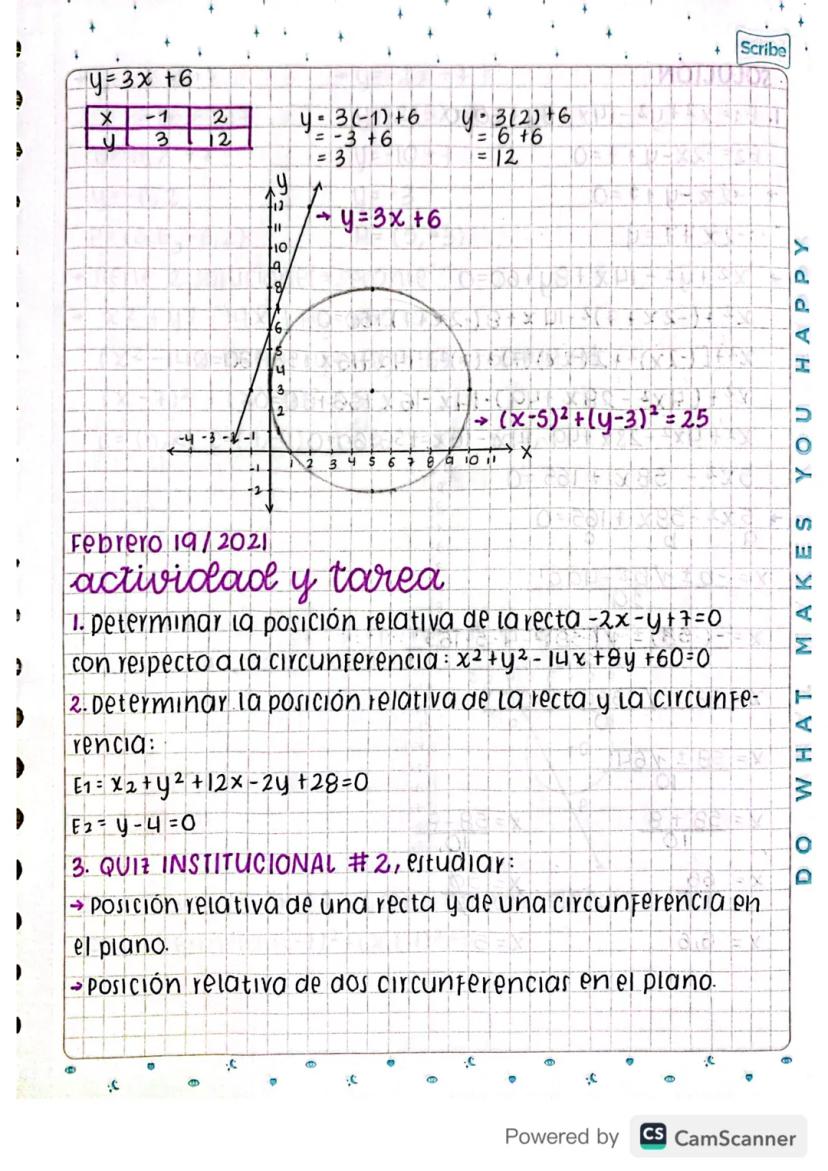 Scribe
y=3x+6
x -1 2
y 3 12
y = 3(-1)+6
= -3 +6
= 3
y = 3(2)+6
= 6 +6
= 12
y
12
11
10
9
8
7
6
5
4
3
2
→ y=3x+6
→ (x-5)² + (y-3)² = 25
-4 -3 -2 -1
1 2 3 4 5 6 7 8 9 10 11 x
-1
-2
Febrero 19/2021
actividad y tarea
1. Determinar la posición relativa de la recta -2x-y+7=0
con respecto a la circunferencia: x²+y²-14x+8y+60=0
2. Determinar la posición relativa de la recta y la circunfe-
rencia:
E1= x2+y²+12x-2y+28=0
E2= y-4=0
3. QUIZ INSTITUCIONAL #2, estudiar:
→ Posición relativa de una recta y de una circunferencia en
el plano.
→ Posición relativa de dos circunferencias en el plano.
DO WHAT MAKES YOU HAPPY
Powered by CS CamScanner